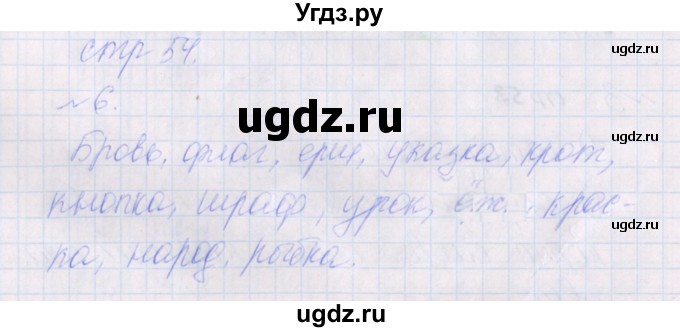 Угдз.ру
стр 54.
№6.
Бровь, флаг, ерш, указка, крот,
кнопка, шраф, урок, ёж., крас-
ка, народ, рыбка.
ugdz.ru
ugdz.ru
ugdz.ru
ugdz.ru
ugdz.ru